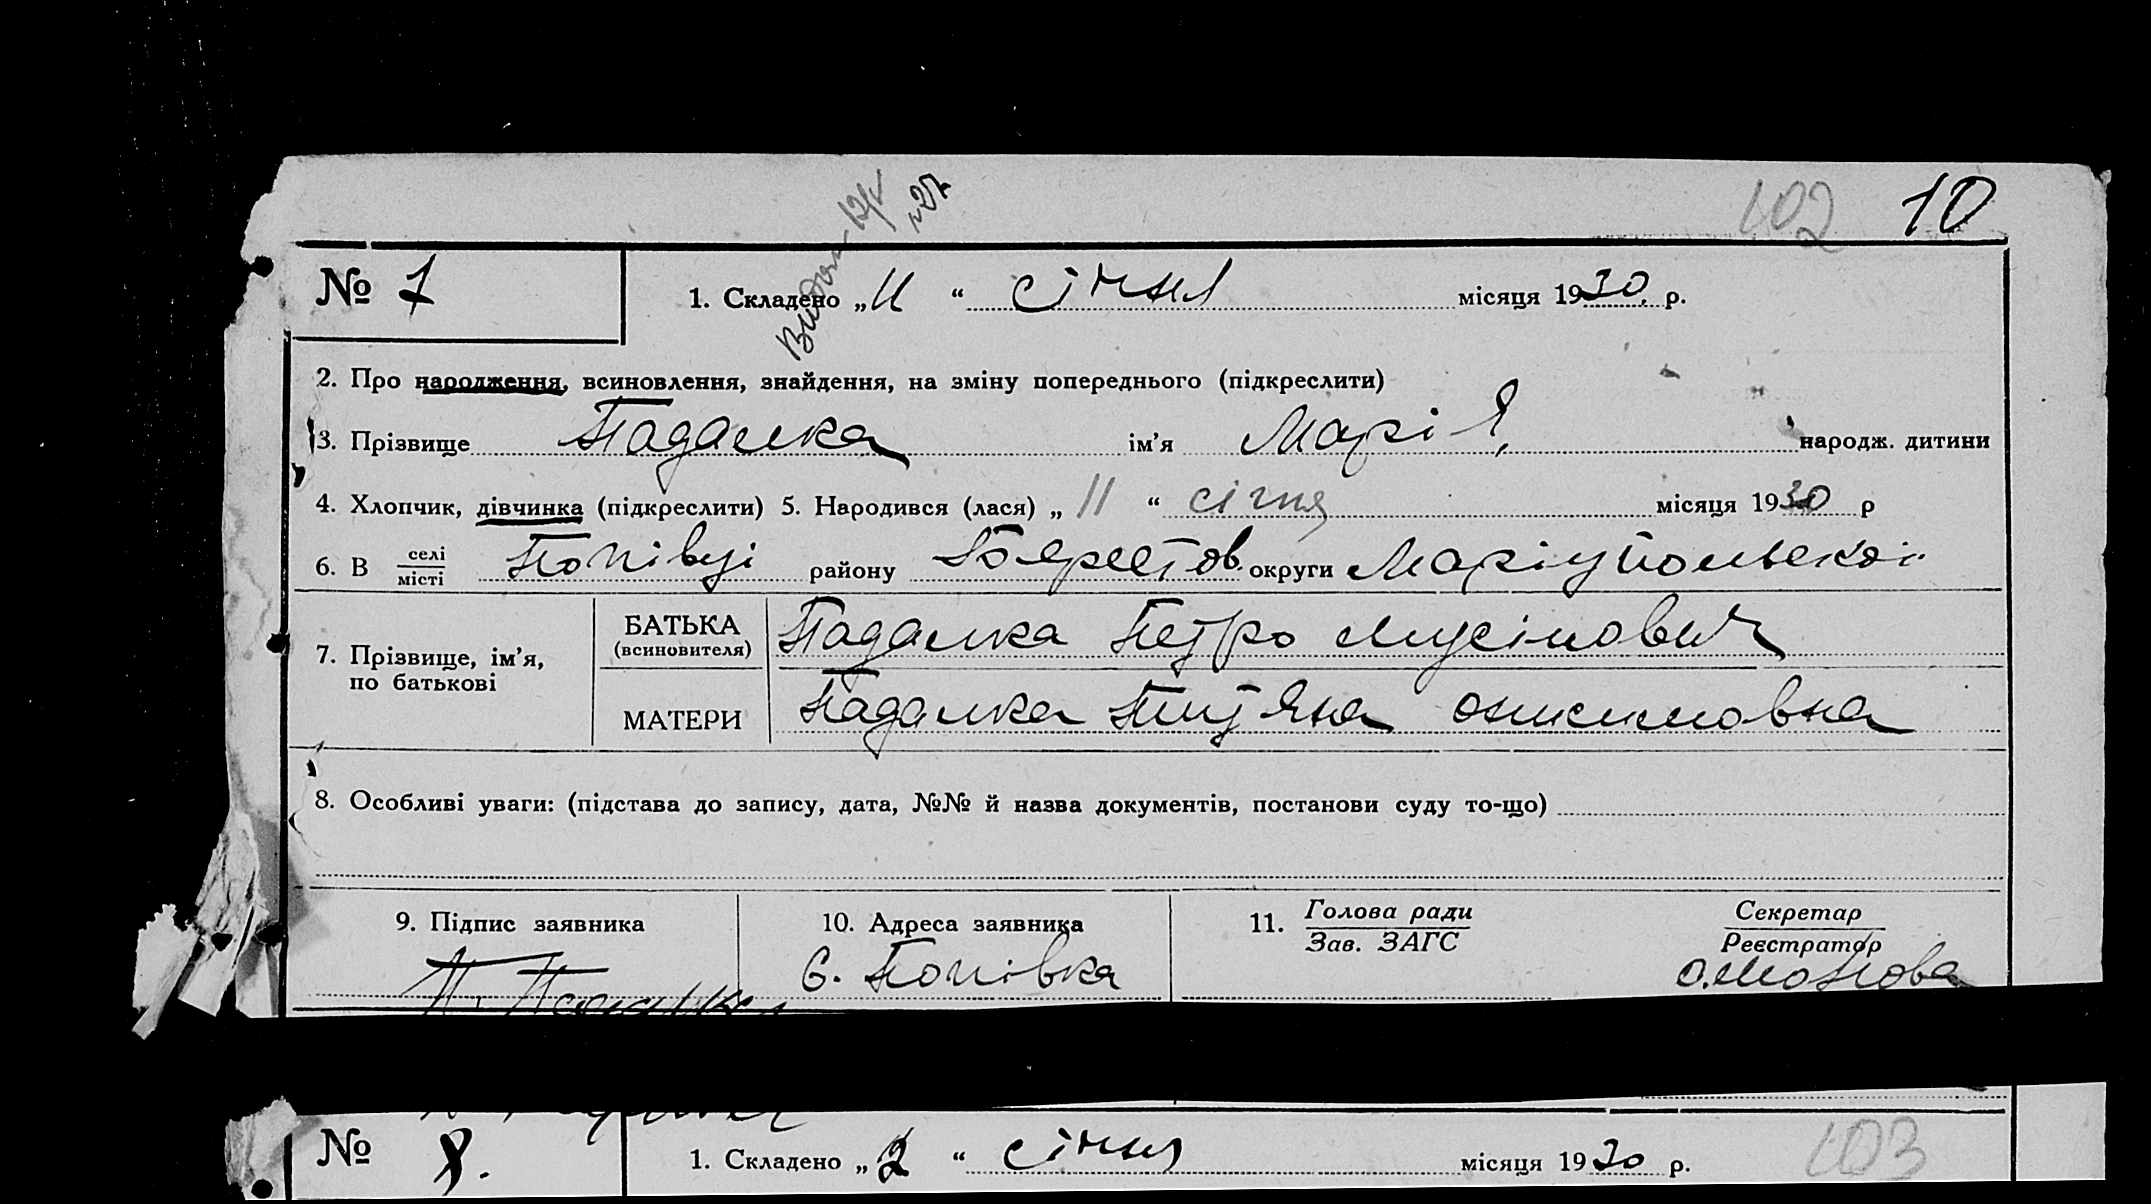 102 10
Видан 12/V
№ 7 1. Складено „11 “ січня місяця 1930. р.
2. Про народження, всиновлення, знайдення, на зміну попереднього (підкреслити)
3. Прізвище Падалка ім’я Марія, народж. дитини
4. Хлопчик, дівчинка (підкреслити) 5. Народився (лася) „ 11 “ січня місяця 1930 р
6. В селі/місті Попівці району Боярестов. округи Маріупольскої
7. Прізвище, ім’я, по батькові
БАТЬКА (всиновителя) Падалка Петро Мусійович
МАТЕРИ Падалка Тит'яна
8. Особливі уваги: (підстава до запису, дата, №№ й назва документів, постанови суду то-що)
9. Підпис заявника 10. Адреса заявника 11. Голова ради/Зав. ЗАГС Секретар/Реєстратор
П. Падалка С. Попівка
№ 8. 1. Складено „ 2 “ січня місяця 1930 р. 103